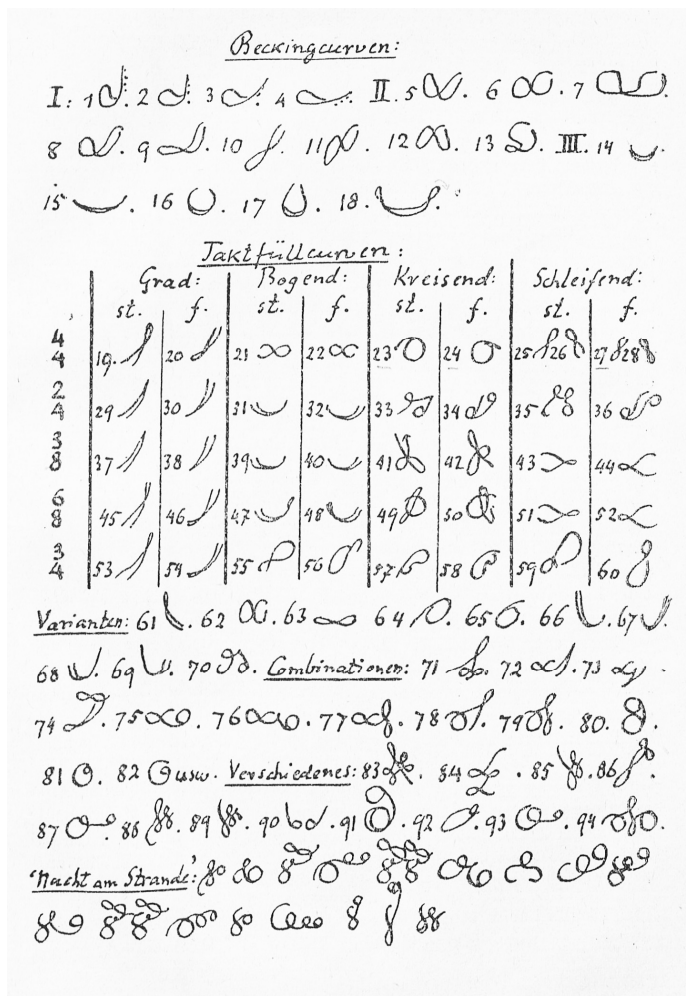 Beckingcurven:
I: 1 . 2 . 3 . 4 . II. 5 . 6 . 7 .
8 . 9 . 10 . 11 . 12 . 13 . III. 14 .
15 . 16 . 17 . 18. .
Taktfüllcurven:
Grad: Bogend: Kreisend: Schleifend:
st. f. st. f. st. f. st. f.
4/4 19. 20 21 22 23 24 25 26 27 28
2/4 29 30 31 32 33 34 35 36
3/8 37 38 39 40 41 42 43 44
6/8 45 46 47 48 49 50 51 52
3/4 53 54 55 56 57 58 59 60
Varianten: 61 . 62 . 63 64 . 65 . 66 . 67 .
68 . 69 . 70 . Combinationen: 71 . 72 . 73 .
74 . 75 . 76 . 77 . 78 . 79 . 80. .
81 . 82 usw. Verschiedenes: 83 . 84 . 85 . 86 .
87 . 88 . 89 . 90 . 91 . 92 . 93 . 94 .
'Nacht am Strande':